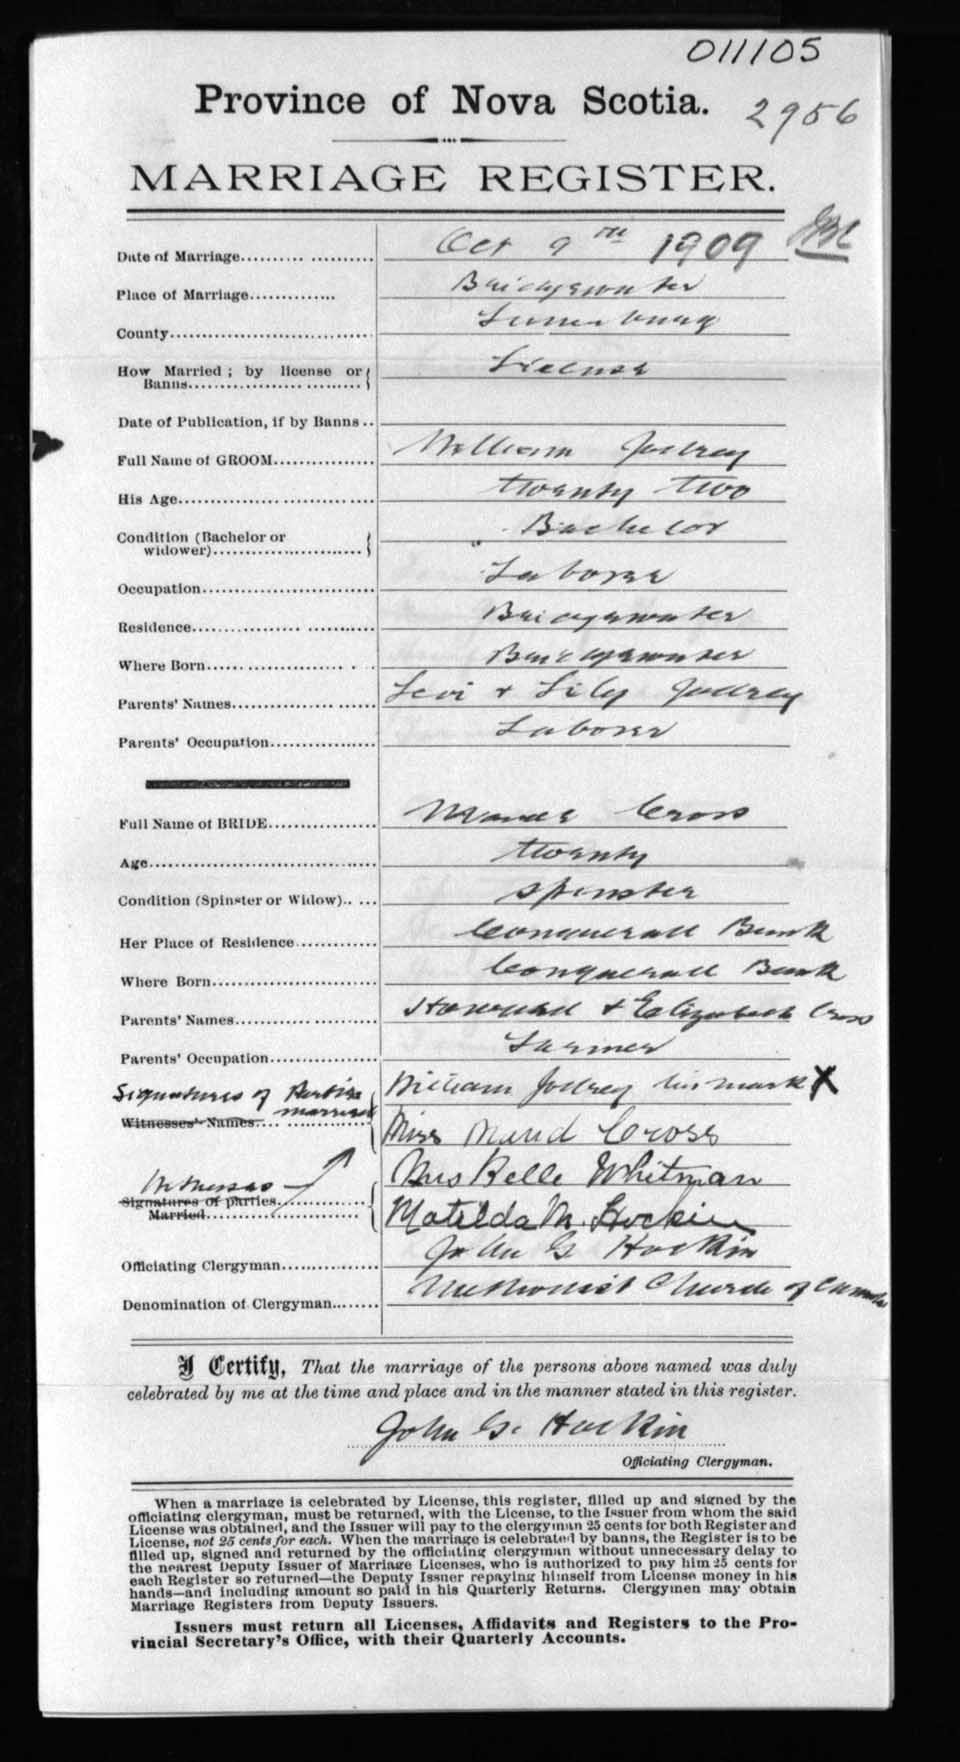 011105
Province of Nova Scotia.
2956
MARRIAGE REGISTER.
Date of Marriage Oct 9th 1909
Place of Marriage Bridgewater
County Lunenburg
How Married; by license or Banns License
Date of Publication, if by Banns
Full Name of GROOM William Jodrey
His Age twenty two
Condition (Bachelor or widower) Bachelor
Occupation Laborer
Residence Bridgewater
Where Born Bridgewater
Parents' Names Levi + Lily Jodrey
Parents' Occupation Laborer
Full Name of BRIDE Maude Cross
Age twenty
Condition (Spinster or Widow) Spinster
Her Place of Residence Conquerall Bank
Where Born Conquerall Bank
Parents' Names Howard + Elizabeth Cross
Parents' Occupation Farmer
Signatures of Parties married William Jodrey his mark X
Witnesses' Names Miss Maud Cross
Witnesses Mrs Belle Whitman
Signatures of parties Married Matilda M. Hockin
Officiating Clergyman John G Hockin
Denomination of Clergyman Methodist Church of Canada
I Certify, That the marriage of the persons above named was duly
celebrated by me at the time and place and in the manner stated in this register.
John G. Hockin
Officiating Clergyman.
When a marriage is celebrated by License, this register, filled up and signed by the
officiating clergyman, must be returned, with the License, to the Issuer from whom the said
License was obtained, and the Issuer will pay to the clergyman 25 cents for both Register and
License, not 25 cents for each. When the marriage is celebrated by banns, the Register is to be
filled up, signed and returned by the officiating clergyman without unnecessary delay to
the nearest Deputy Issuer of Marriage Licenses, who is authorized to pay him 25 cents for
each Register so returned—the Deputy Issuer repaying himself from License money in his
hands—and including amount so paid in his Quarterly Returns. Clergymen may obtain
Marriage Registers from Deputy Issuers.
Issuers must return all Licenses, Affidavits and Registers to the Pro-
vincial Secretary's Office, with their Quarterly Accounts.